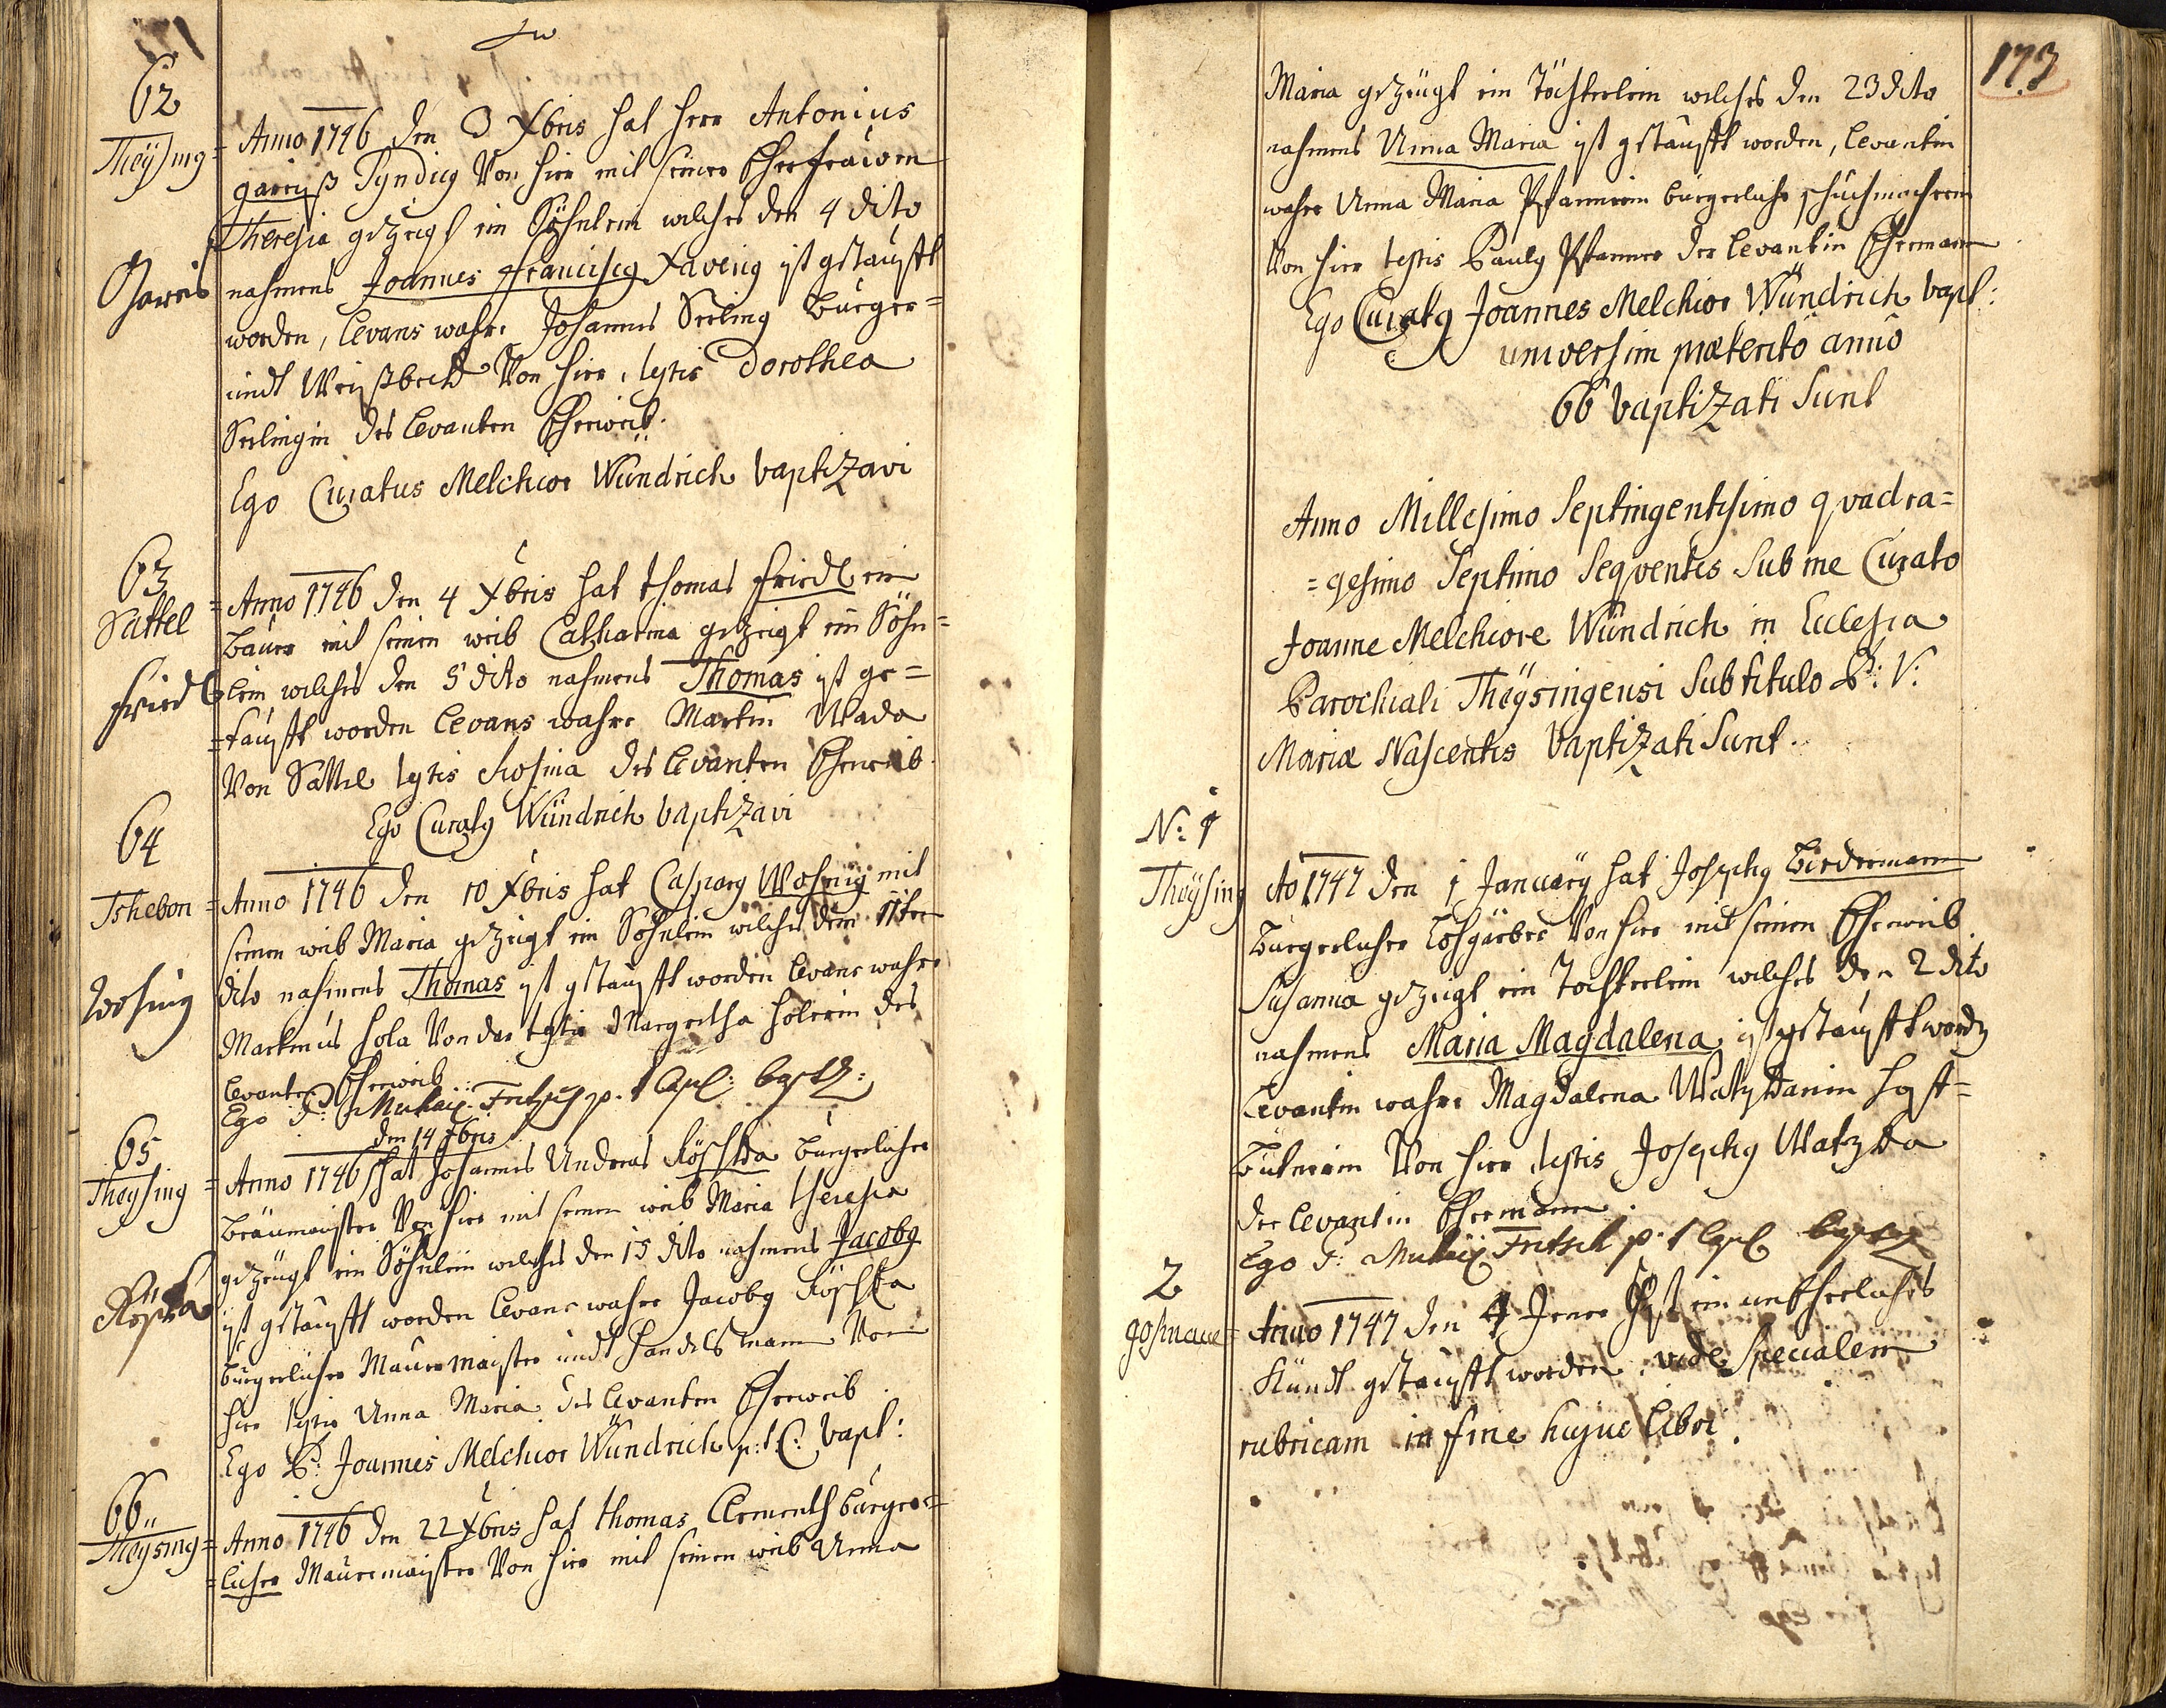 62
Theÿsing = Anno 1746 den 3 Xbris hat herr Antonius
gareiß Syndicq Von hier mit seiner Ehefrauen
Theresia gezeugt ein Söhnlein welches den 4 dito
Gareis
nahmens Joannes Franciscq Xaveriq ist getaufft
worden, Levans wahre Johannes Seeling Burger=
undt Weißbeckh Von hier, testis Dorothea
Seelingin des Levanten Eheweib.
Ego Curatus Melchior Wündrich baptizavi
63
Sattel
= Anno 1746 den 4 Xbris hat thomas friedl ein
Bauer mit seinen weib Catharina gezeigt ein Söhn=
friedl
lein welches den 5 dito nahmens Thomas ist ge=
=taufft worden Levans wahre Martin Wada
Von Sattel testis Rosina des Levanten Eheweib.
Ego Curatq Wündrich baptizavi
64
Tschebon = Anno 1746 den 10 Xbris hat Casparq Wohnig mit
seinen weib Maria gezeigt ein Söhnlein welches dem 11ten
Wohnig
dito nahmens Thomas ist getaufft worden Levans wahre
Martinus hola Von dar testis Margretha holerin des
Levanten Eheweib
Ego P: Fritsch p. t Cpl: bapt:
65
den 14 Xbris
Theysing = Anno 1746 hat Johannes Andreas Röschka bürgerlicher
Bräumaister Von hier mit seinen weib Maria theresia
gezeugt ein Söhnlein welches den 15 dito nahmens Jacobq
Röschka
ist getaufft worden Levans wahre Jacobq Röschka
bürgerlicher Maurermaister undt handelsmann Von
hier testis Anna Maria des Levanten Eheweib
Ego P: Joannes Melchior Wündrich p: t C: bapt:
66
Theysing = Anno 1746 den 22 Xbris hat thomas Clementh bürger=
=licher Maurermaister Von hier mit seinen weib Anna
173
Maria gezeugt ein Töchterlein welches den 23 dito
nahmens Anna Maria ist getaufft worden, Levantin
wahre Anna Maria Pfannerin bürgerliche schuchmacherin
Von hier testis Paulq Pfanner der Levantin Ehemann
Ego Curatq Joannes Melchior Wündrich bapt:
universim præteritô annô
66 baptizati Sunt
Anno Millesimo Septingentesimo qvadra=
=gesimo Septimo Seqventes Sub me Curato
Joanne Melchiore Wündrich in Ecclesia
Parochiali Theÿsingensi Sub titulo B: V:
Mariæ Nascentis baptizati Sunt.
N: 1
Theÿsing Ao 1747 den 1 Januarÿ hat Josephq Biedermann
Bürgerlicher Lohgärber Von hier mit seinen Eheweib
Susanna gezeigt ein Tochterlein welches den 2 dito
nahmens Maria Magdalena ist getaufft word
Levantin wahre Magdalena Watzkanin
Von hier, testis Josephq Watzka
der Levantin Ehemann.
Ego P: Fritsch p. t Cpl bapt
2
Anno 1747 den 4 Jener ist ein unEheliches
Kündt getaufft worden. vide Specialem
rubricam in fine hujus libri.